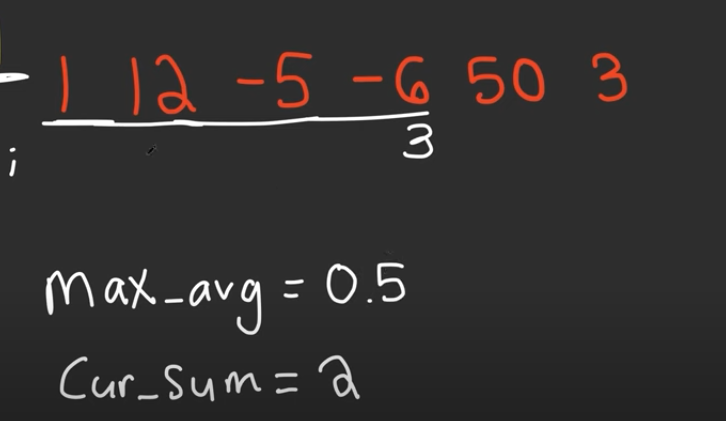 1 12 -5 -6 50 3
3
i
max_avg = 0.5
Cur_sum = 2